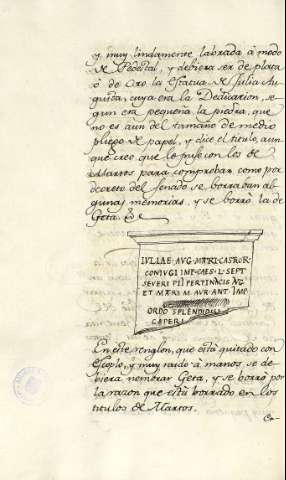 y muy lindamente labrada à modo
de Pedestal, y debiera ser de plata
ò de Oro la estatua de Julia Au-
gusta, cuya era la Dedicacion, se-
gun era pequeña la piedra, que
no es aun del tamaño de medio
pliego de papel, y dice el titulo, aun
que creo que le puse con los de
Martos para comprobar como por
decreto del senado se borraban al-
gunas memorias, y se borrò la de
Geta. &c
IVLIAE AVG MATRI CASTROR
CONIVGI IMP CAES L SEPT
SEVERI PII PERTINACIS AVG
ET MATRI M AVR ANT IMP
ORDO SPLENDIDISS
CAPERI
En este renglon, que està quitado con
Escoplo, y muy raido à manos se de-
biera nombrar Geta, y se borrò por
la razon que està borrado en los
titulos de Martos.